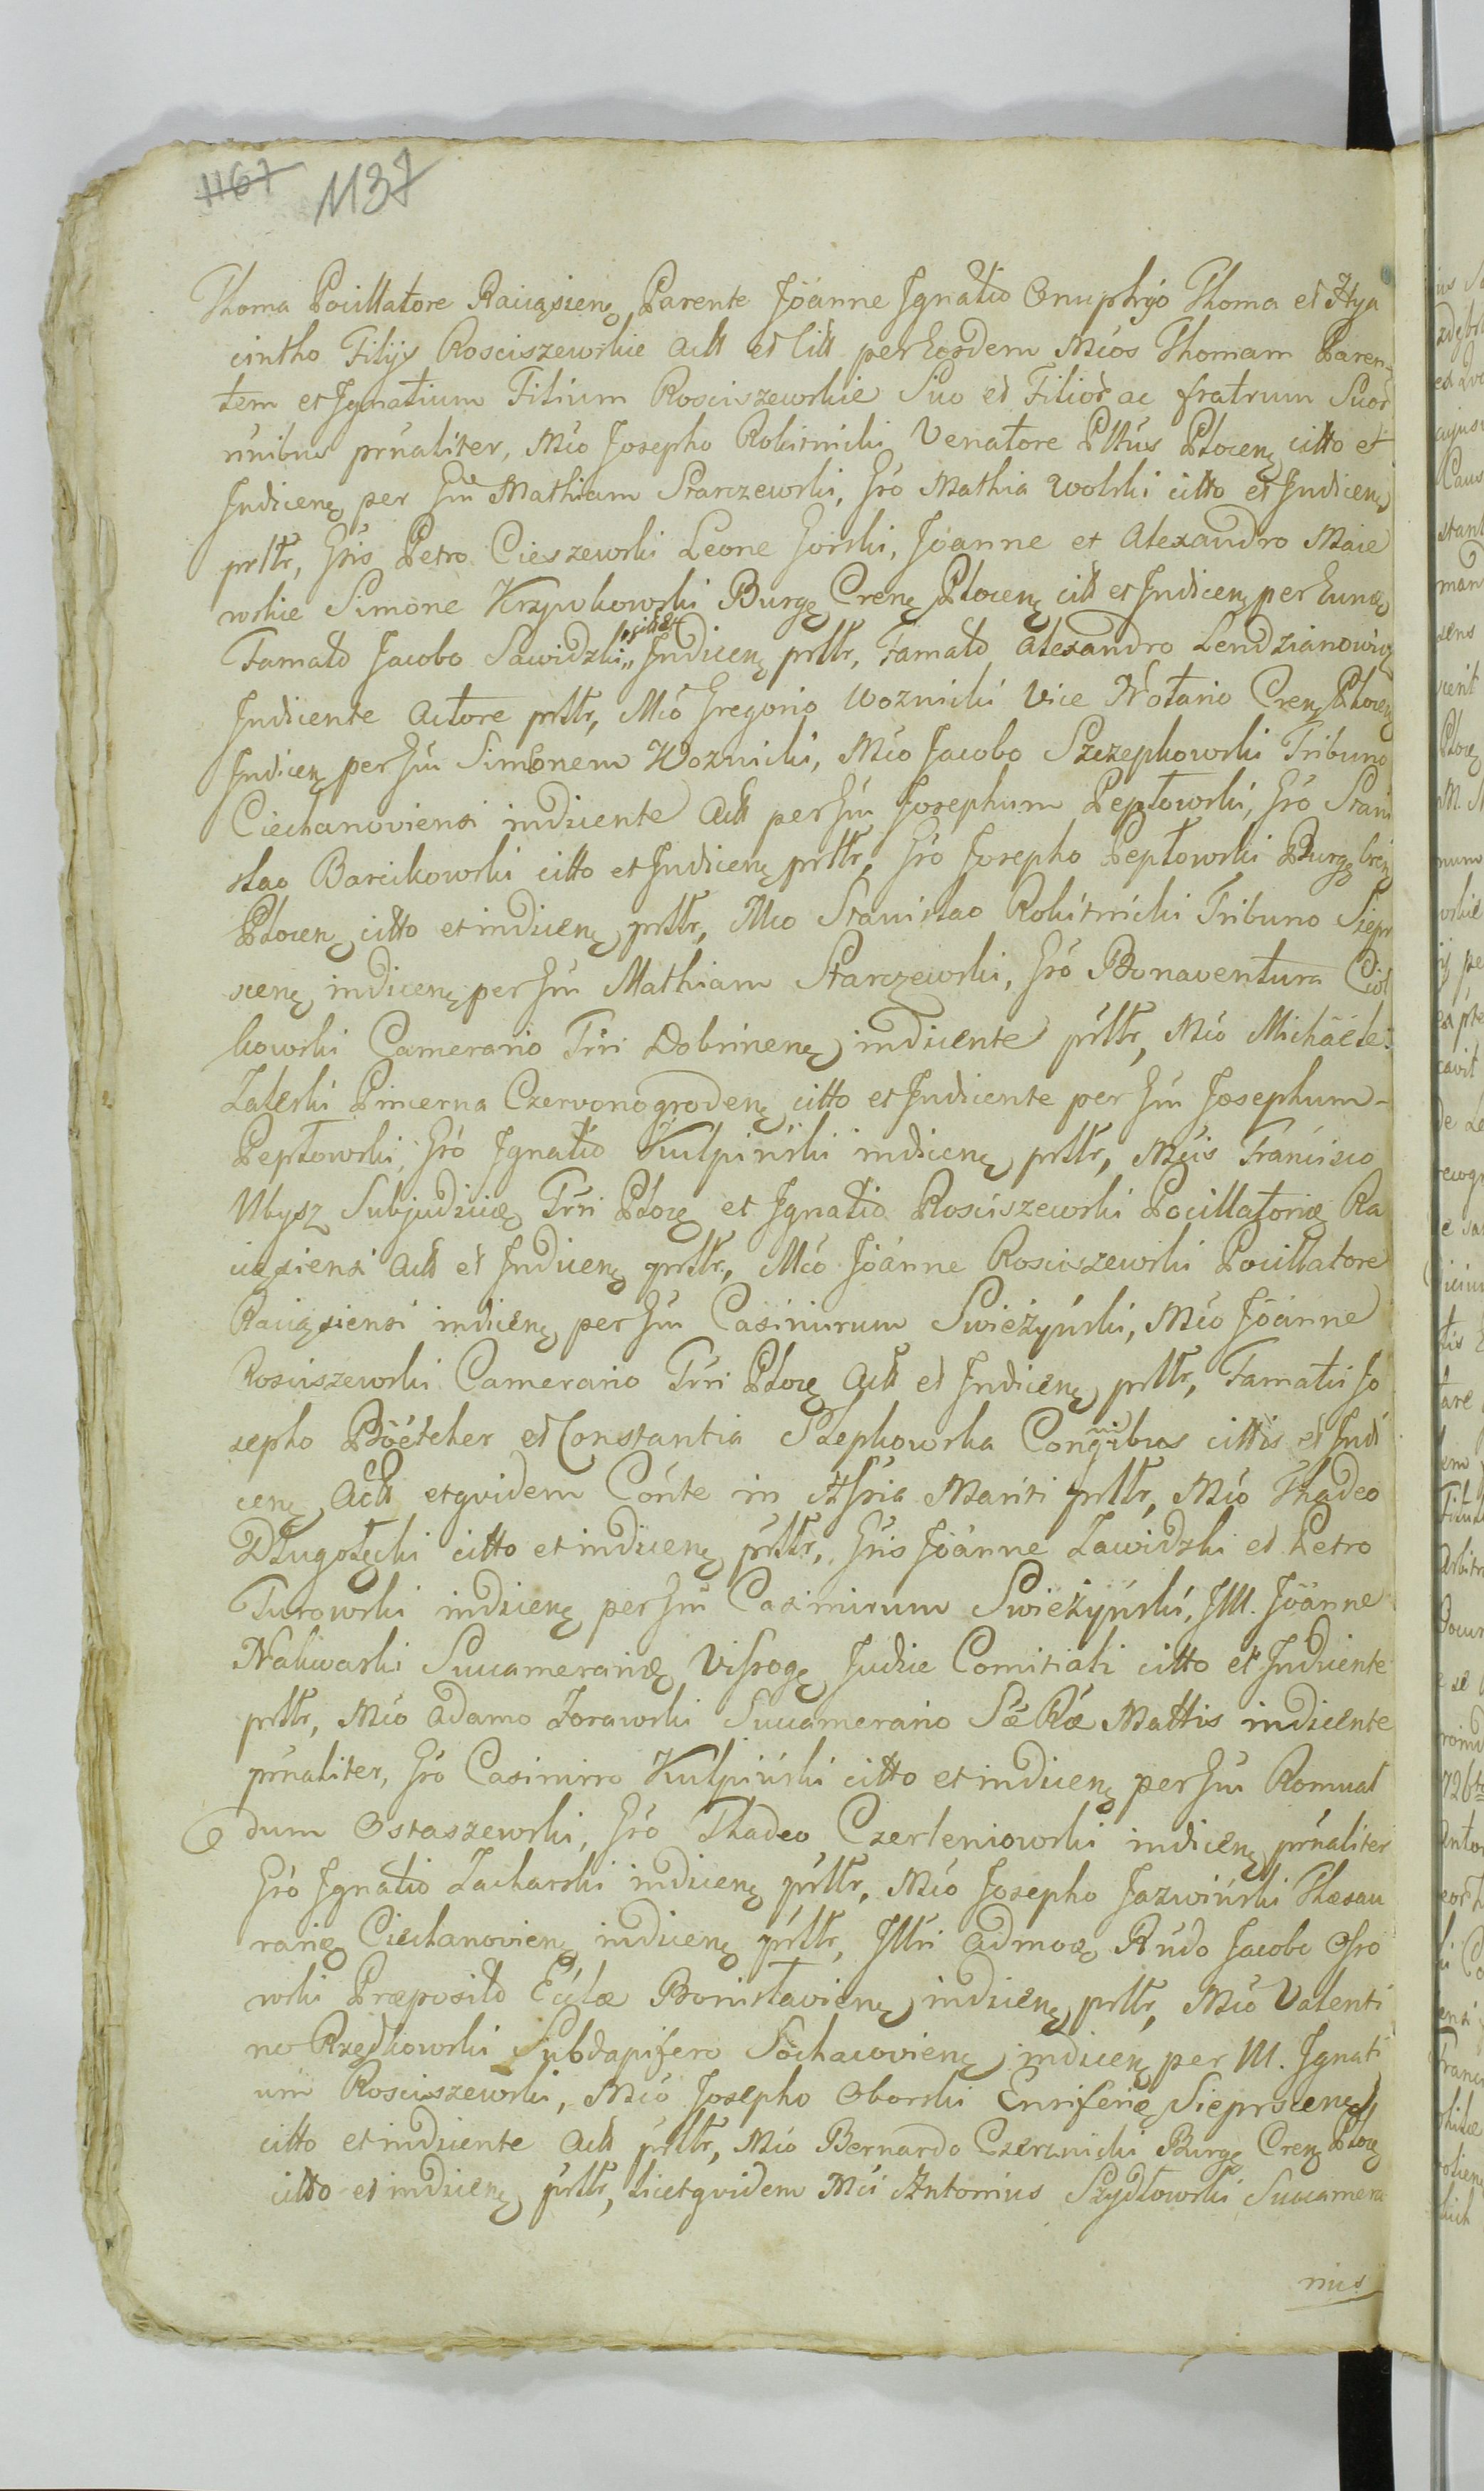 1167 1137
Thoma Pocillatore Raciązienę Parente Joanne Ignatio Onuphryo Thoma et Hya
cintho Filijs Rosciszewskie Actt et Citt per Eosdem Mcos Thomam Paren-
tem et Ignatium Filium Rosciszewskie Suo et Filior ac fratrum Suor
nnibus prnaliter, Mco Josepho Rokitnicki Venatore Pttus Plocenę citto et
Indicenę per Gm Mathiam Starczewski, Gro Mathia Wolski citto et Indicenę
prttr, Gris Petro Cieszewski Leone Gorski, Joanne et Alexandro Maie
wskie Simone Krzywkowski Burgę Crenę Plocenę citt et Indicenę per Eundę
Famato Jacobo Sawidzki Indicenę prttr, Famato Alexandro Lendzianowicz
Indicente Actore prttr, Mco Gregorio Woznicki Vice Notario Crenę Plocenę
Indicenę per Gm Simonem Woznicki, Mco Jacobo Szczepkowski Tribuno
Ciechanoviensi indicente Actt per Gm Josephum Peptowski, Gro Stani
slao Barcikowski citto et Indicenę prttr, Gro Josepho Peptowski Burgę Crenę
Plocenę citto et indicenę prttr, Mco Stanislao Rokitnicki Tribuno Siepr
scenę indicenę per Gm Mathiam Starczewski, Gro Bonaventura Ciot
kowski Camerario Trri Dobrinenę indicente prttr, Mco Michaele
Zaleski Pincerna Czervonogrodenę citto et Indicente per Gm Josephum
Peptowski, Gro Ignatio Kulpiński indicenę prttr, Mcis Francisco
Ubysz Subjudicę Trri Plocę et Ignatio Rosciszewski Pocillatorię Ra
ciąziensi Actt et Indicenę prttr, Mco Joanne Rosciszewski Pocillatore
Raciąziensi indicenę per Gm Casimirum Swieżyński, Mco Joanne
Rosciszewski Camerario Trri Plocę Actt et Indicenę prttr, Famatis Jo
sepho Böetcher et Constantia Slepkowska Congibus cittis et Indi
cenę Actt et quidem Conte in Assria Mariti prttr, Mco Thadeo
Długołęcki citto et indicenę prttr, Gris Joanne Zawidzki et Petro
Turowski indicenę per Gm Casimirum Swieżyński, JM. Joanne
Nakwaski Succamerarię Vissogę Judice Comitiali citto et Indicente
prttr, Mco Adamo Zorawski Succamerario Sæ Ræ Mattis indicente
prnaliter, Gro Casimiro Kulpiński citto et indicenę per Gm Romual
dum Ostaszewski, Gro Thadeo Czerleniowski indicenę prnaliter
Gro Ignatio Zacharski indicenę prttr, Mco Josepho Jazwiński Thesau
rarię Ciechanovienę indicenę prttr, Jttri admoę Rndo Jacobo Osso
wski Præposito Ecclæ Bonislavienę indicenę prttr, Mco Valenti
no Rzędkowski Subdapifero Sochacovienę indicenę per M. Ignati
um Rosciszewski, Mco Josepho Oborski Ensiferię Sieprscenę
citto et indicente Actt prttr, Mco Bernardo Czerznicki Burgę Crenę Plocę
citto et indicenę prttr, licet quidem Mci Antonius Szydłowski Succamera
rius